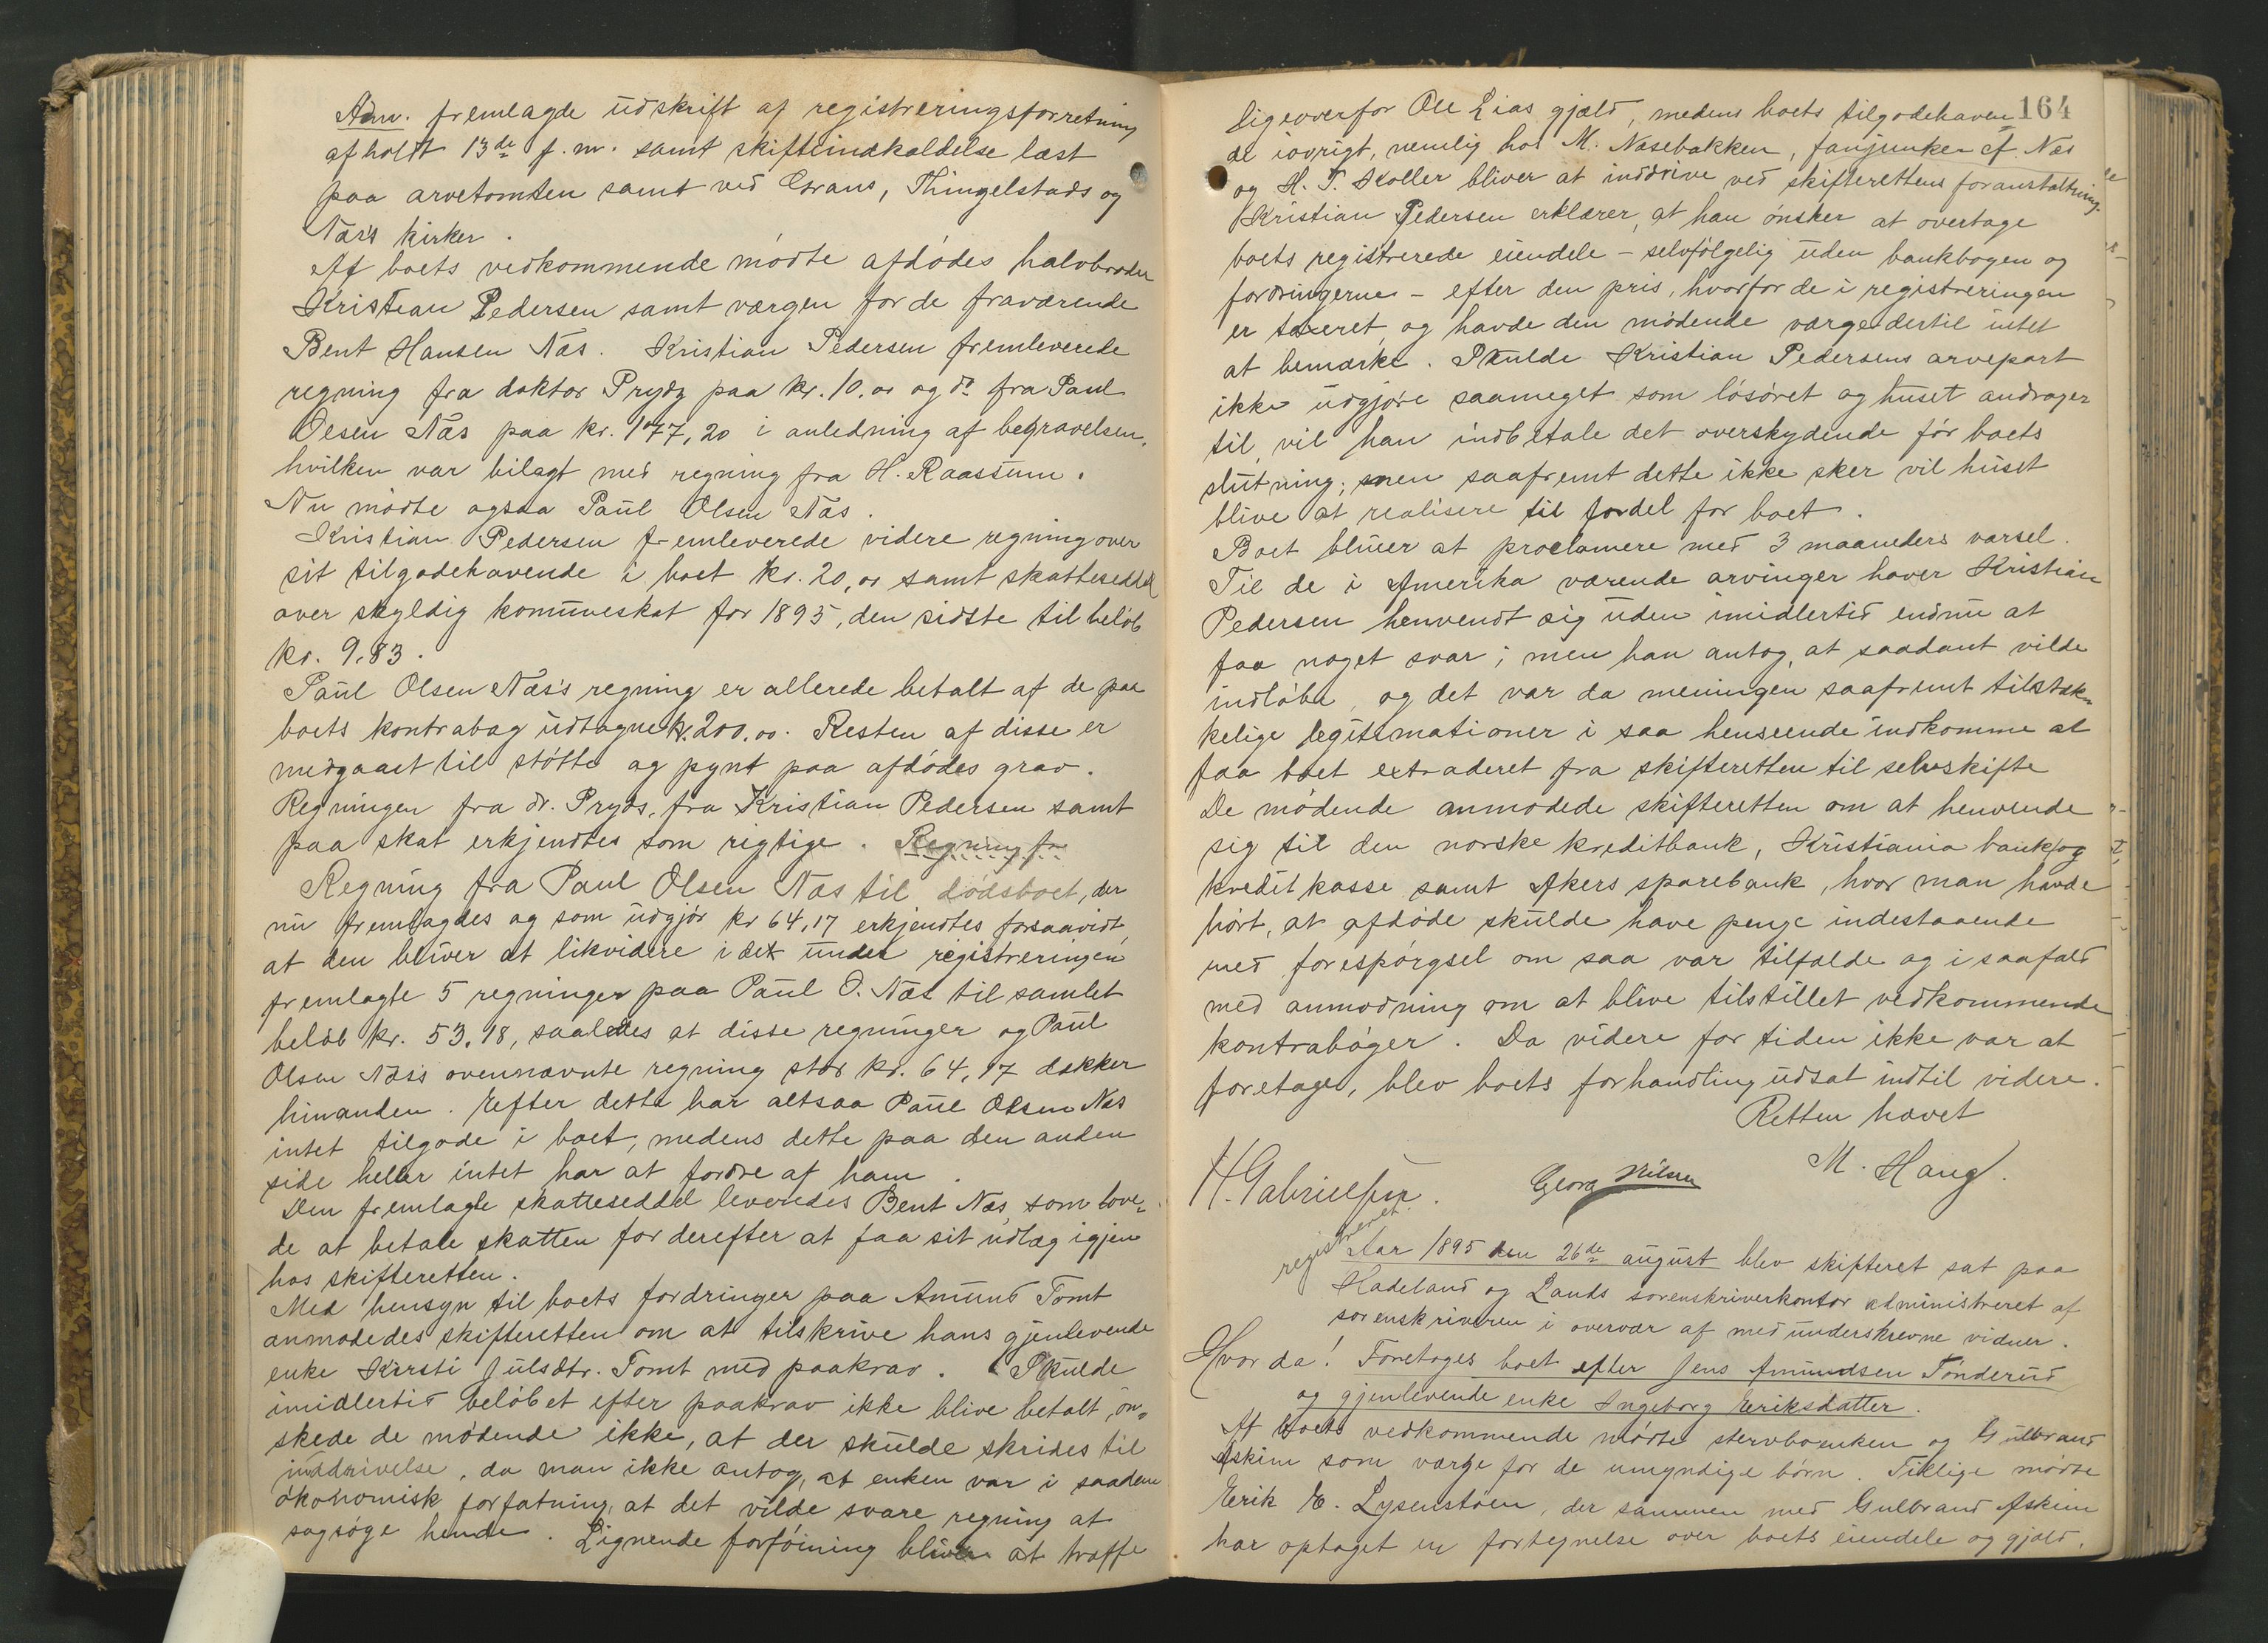 Adm. fremlagde udskrift af registreringsforretning
afholdt 13de f. m. samt skifteindkaldelse læst
paa arvetomten samt ved Grans, Thingelstads og
Næs's kirker.
Af boets vedkommende mødte afdødes halvbroder
Kristian Pedersen samt værgen for de fraværende
Bent Hansen Næs. Kristian Pedersen fremleverede
regning fra doktor Prydz paa kr. 10.00 og do fra Paul
Olsen Næs paa kr. 177,20 i anledning af begravelsen,
hvilken var bilagt med regning fra H. Raassum.
Nu mødte ogsaa Paul Olsen Næs.
Kristian Pedersen fremleverede videre regning over
sit tilgodehavende i boet kr. 20,00 samt skatteseddel
over skyldig kommuneskat for 1895, den sidste til beløb
kr. 9.83.
Paul Olsen Næs's regning er allerede betalt af de paa
boets kontrabog udtagne kr. 200.00. Resten af disse er
medgaaet til støtte og pynt paa afdødes grav.
Regningen fra dr. Pryds, fra Kristian Pedersen samt
paa skat erkjendtes som rigtige. Regning fra
Regning fra Paul Olsen Næs til dødsboet, der
nu fremlagdes og som udgjør kr 64,17 erkjendtes forsaavidt,
at den bliver at likvidere i det under registreringen
fremlagte 5 regninger paa Paul O. Næs til samlet
beløb kr. 53.18, saaledes at disse regninger og Paul
Olsen Næs's ovennævnte regning stor kr. 64,17 dækker
hinanden. Efter dette har altsaa Paul Olsen Næs
intet tilgode i boet, medens dette paa den anden
side heller intet har at fordre af ham.
Den fremlagte skatteseddel leveredes Bent Næs, som love-
de at betale skatten for derefter at faa sit udlæg igjen
hos skifteretten.
Med hensyn til boets fordringer paa Amund Tomt
anmodedes skifteretten om at tilskrive hans gjenlevende
enke Kirsti Julsdtr. Tomt med paakrav. Skulde
imidlertid beløbet efter paakrav ikke blive betalt, øn-
skede de mødende ikke, at der skulde skrides til
inddrivelse, da man ikke antog, at enken var i saadan
økonomisk forfatning, at det vilde svare regning at
sagsøge hende. Lignende forføining bliver at træffe
164
ligeoverfor Ole Lias gjæld, medens boets tilgodehaven-
de iøvrigt, nemlig hos M. Næsebakken, fanjunker A. Næs
og H. T. Koller bliver at inddrive ved skifterettens foranstaltning.
Kristian Pedersen erklærer, at han ønsker at overtage
boets registrerede eiendele – selvfølgelig uden bankbogen og
fordringerne – efter den pris, hvorfor de i registreringen
er taxeret, og havde den mødende værge dertil intet
at bemærke. Skulde Kristian Pedersens arvepart
ikke udgjøre saameget som løsøret og huset andrager
til, vil han indbetale det overskydende før boets
slutning; men saafremt dette ikke sker vil huset
blive at realisere til fordel for boet.
Boet bliver at proclamere med 3 maaneders varsel.
Til de i Amerika værende arvinger haver Kristian
Pedersen henvendt sig uden imidlertid endnu at
faa noget svar; men han antog, at saadant vilde
indløbe, og det var da meningen saafremt tilstræk-
kelige legitimationer i saa henseende indkomme at
faa boet extraderet fra skifteretten til selvskifte
De mødende anmodede skifteretten om at henvende
sig til den norske kreditbank, Kristiania bank og
kreditkasse samt Akers sparebank, hvor man havde
hørt, at afdøde skulde have penge indestaaende
med forespørgsel om saa var tilfælde og i saafald
med anmodning om at blive tilstillet vedkommende
kontrabøger. Da videre for tiden ikke var at
foretage, blev boets forhandling udsat indtil videre.
Retten hævet
H. Gabrielsen. Georg Nilsen M. Haug.
registreret.
Aar 1895 den 26de august blev skifteret sat paa
Hadeland og Lands sorenskriverkontor administreret af
sorenskriveren i overvær af medunderskrevne vidner.
Hvor da! Foretoges boet efter Jens Amundsen Tønderud
og gjenlevende enke Ingeborg Eriksdatter.
Af boets vedkommende mødte stervboenken og Gulbrand
Askim som værge for de umyndige børn. Tillige mødte
Erik E. Lysenstøen, der sammen med Gulbrand Askim
har optaget en fortegnelse over boets eiendele og gjæld.